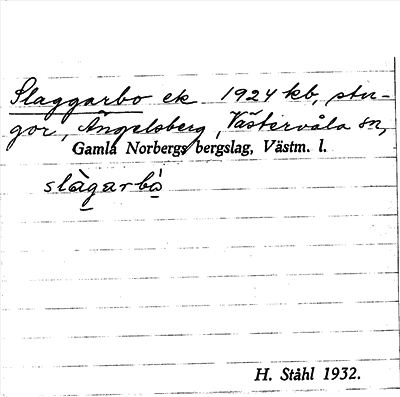 Slaggarbo ek 1924 kb, stu-
gor, Ängelsberg, Västervåla sn,
Gamla Norbergs bergslag, Västm. l.
slàgarbó
H. Ståhl 1932.